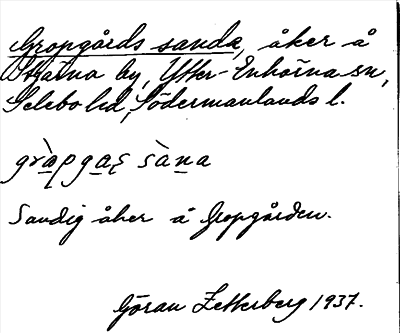 Gropgårds sanda, åker å
by, Ytter-Enhörna sn,
Selebo hd, Södermanlands l.
gràpgaṣ sàna
Sandig åker å Gropgården.
Göran Zetterberg 1937.